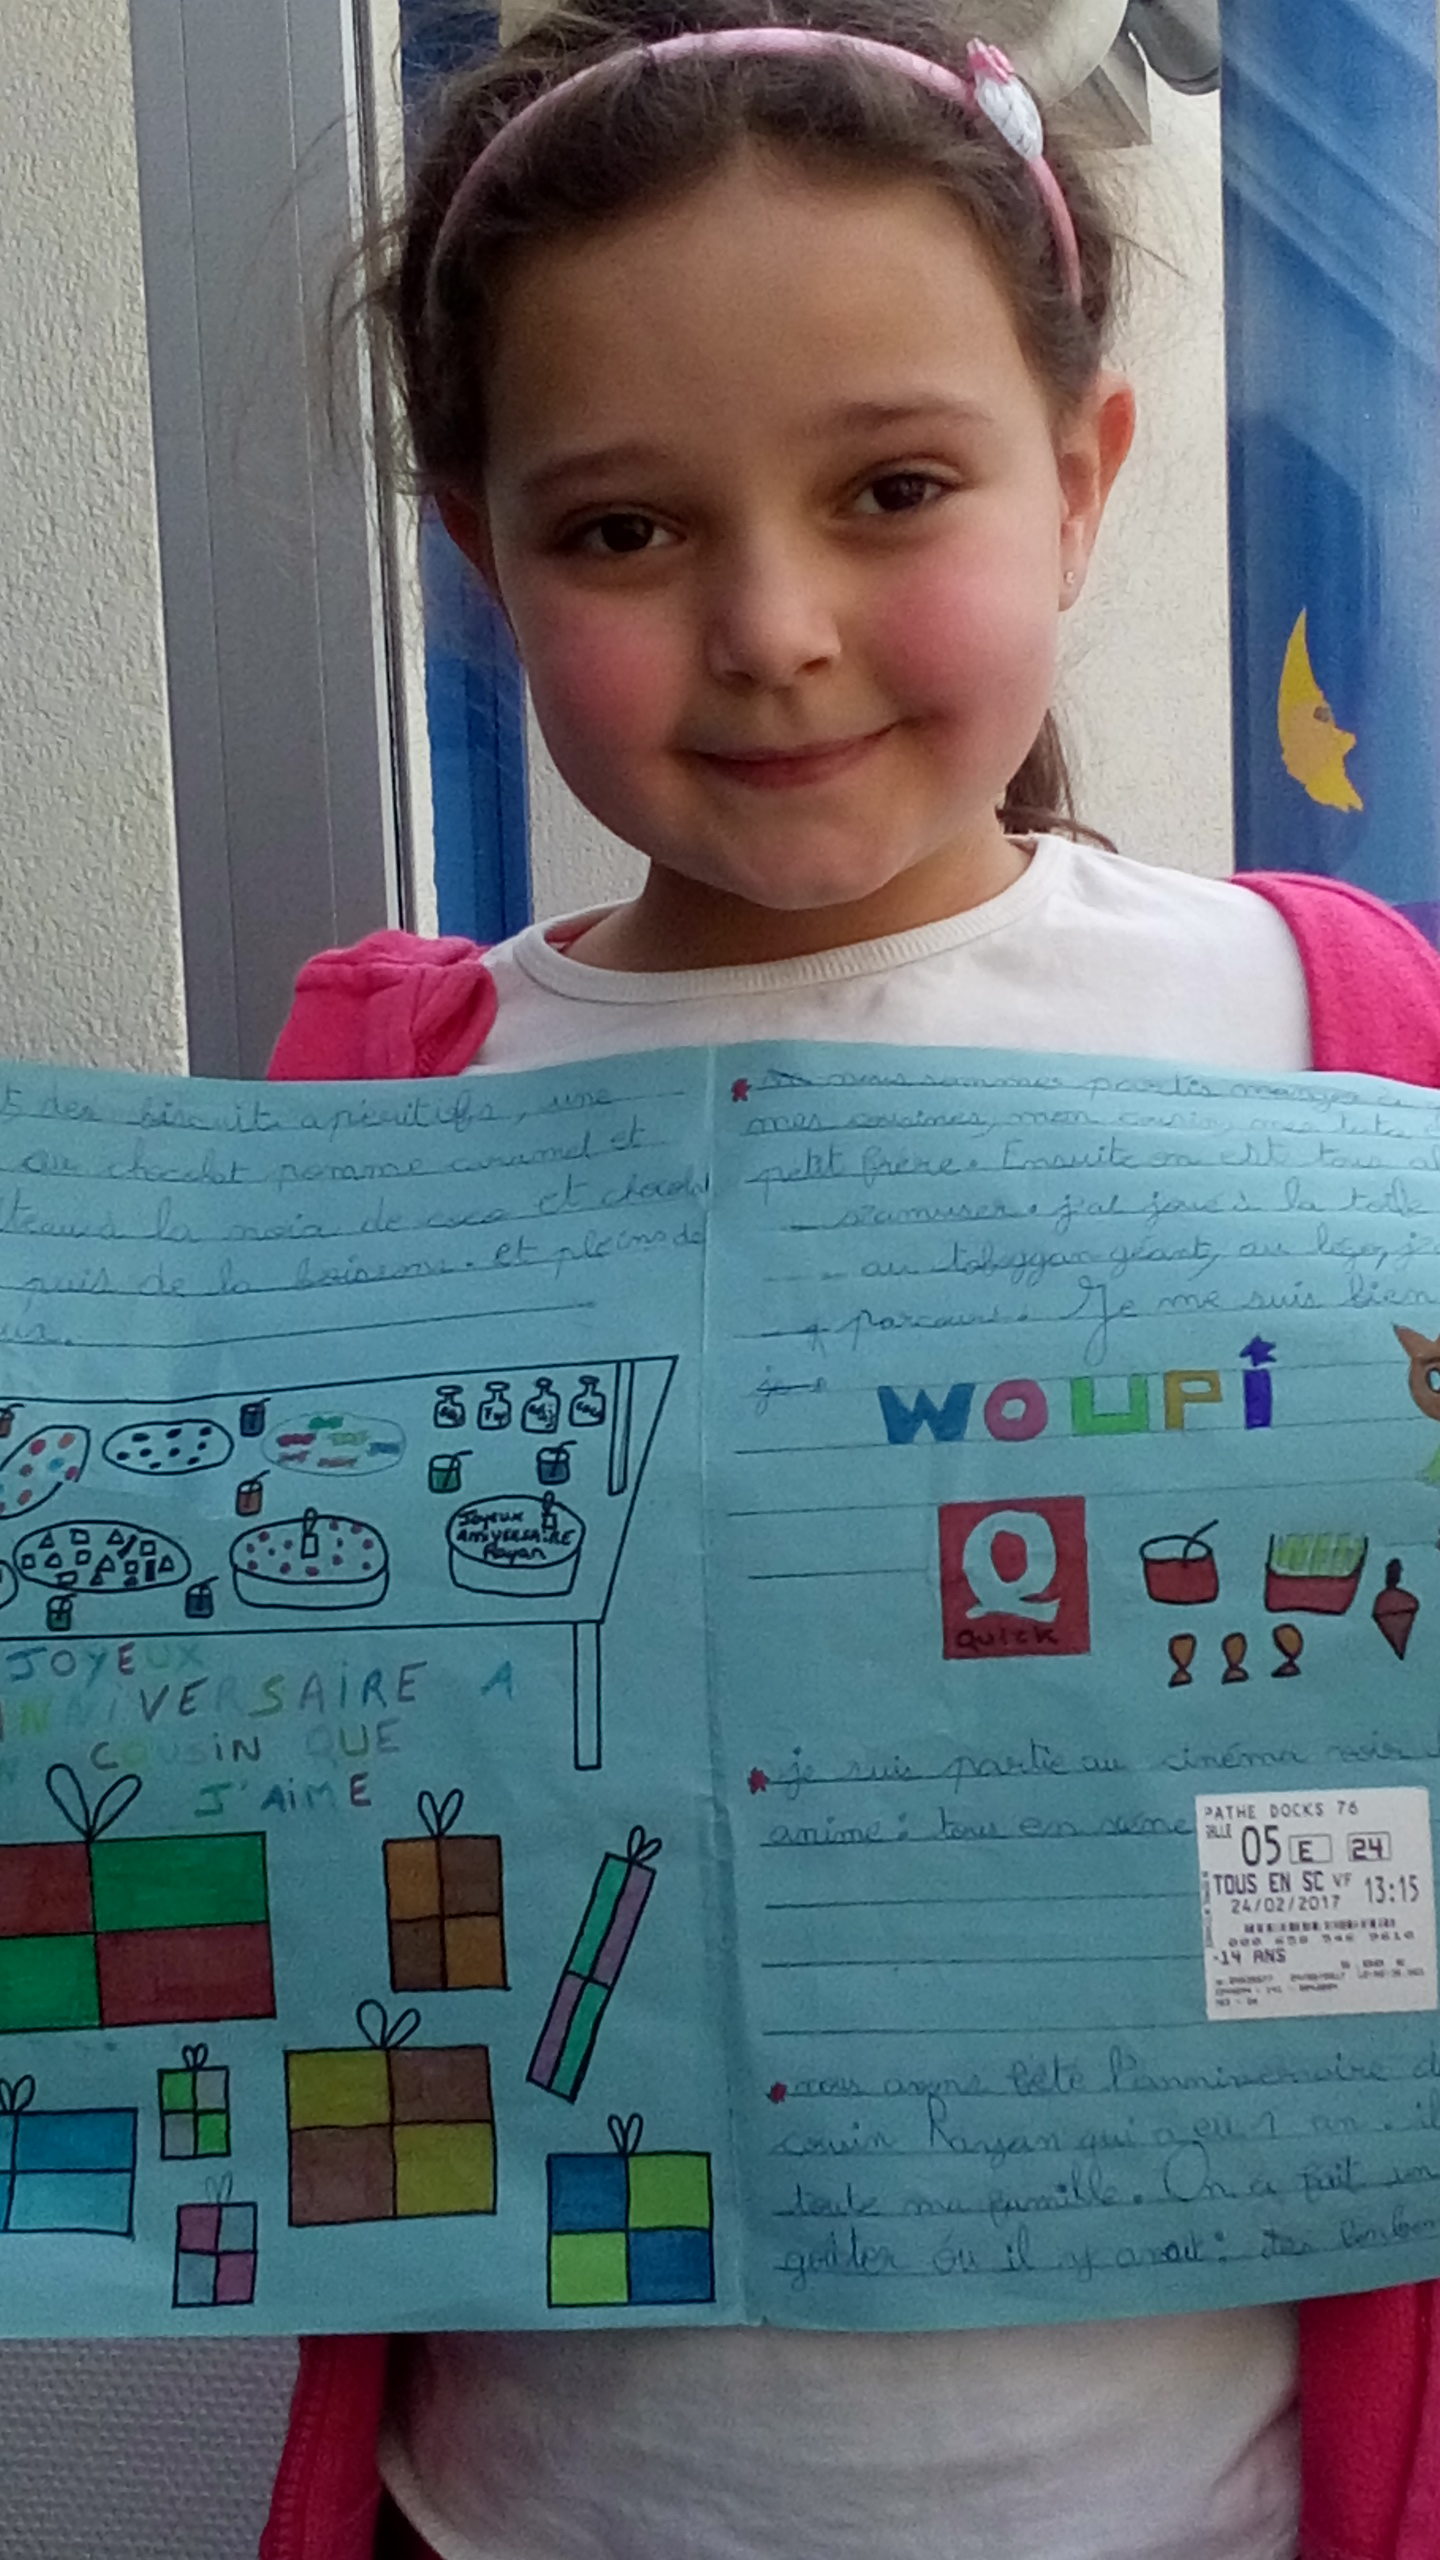 t des biscuits apéritifs, une
au chocolat pomme caramel et
teaux à la noix de coco et chocolat
puis de la boisson. et pleins de
Joyeux
ANIVERSAIRE
Rayan
JOYEUX
NNIVERSAIRE A
N COUSIN QUE
J'AIME
nous sommes partis manger
mes cousines, mon cousin, mes tata
petit frère. Ensuite on est tous al
s'amuser. j'ai joué à la
au toboggan géant, au légo, j'
parcours. Je me suis bien
WOUPi
Q
QUICK
je suis partie au cinéma voir
animé : tous en scène
PATHE DOCKS 76
SALLE 05 E 24
TOUS EN SC VF 13:15
24/02/2017
-14 ANS
nous avons fêté l'anniversaire d
cousin Rayan qui a eu 1 an. il
toute ma famille. On a fait un
goûter où il y avait : des bonbon